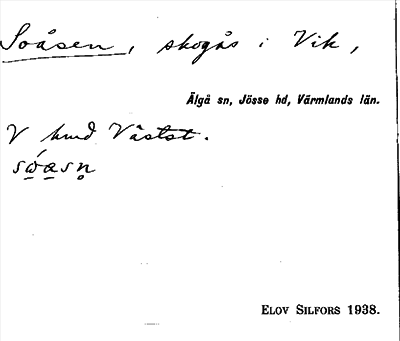 Soåsen, skogås i Vik,
Älgå sn, Jösse hd, Värmlands län.
V
sώasn̥
ELOV SILFORS 1938.